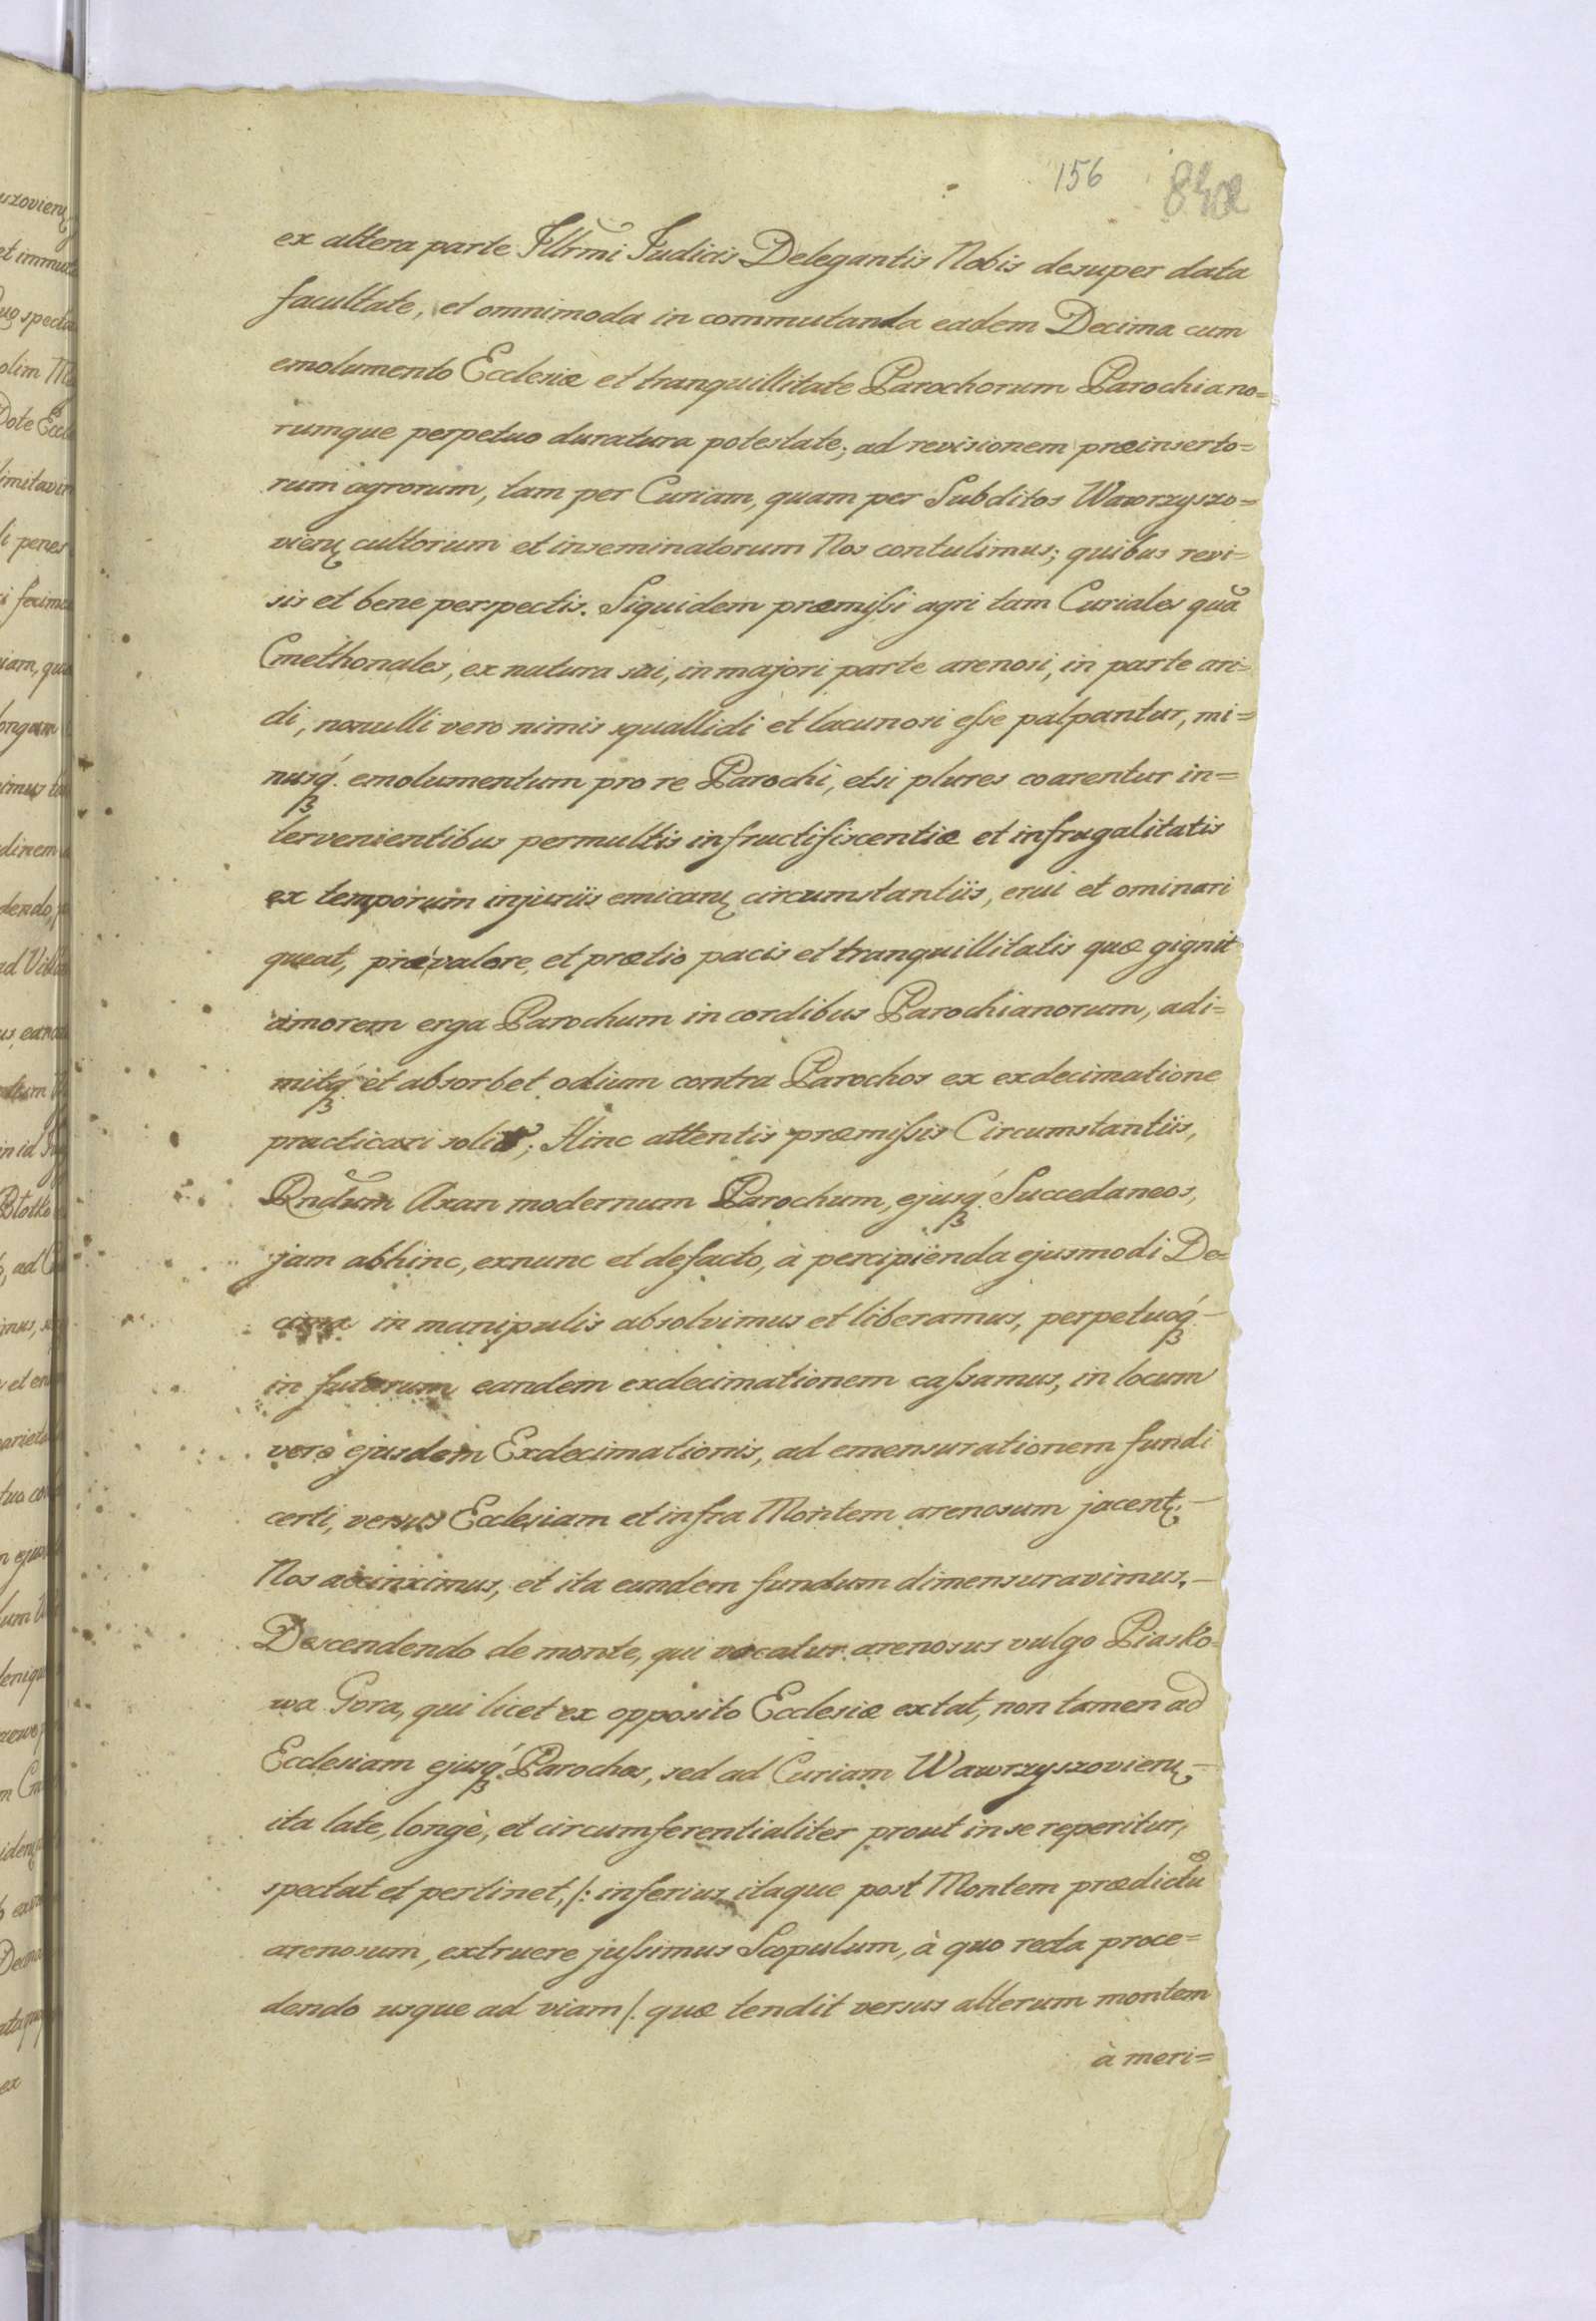 156
ex altera parte Illrmi Judicis Delegantis Nobis desuper data
facultate, et omnimoda in commutanda eadem Decima cum
emolumento Ecclesiæ et tranquillitate Parochorum Parochiano=
rumque perpetuo duratura potestate; ad revisionem præinserto=
rum agrorum, tam per Curiam, quam per Subditos Wawrzyszo=
vien̨ cultorum et inseminatorum Nos contulimus; quibus revi=
sis et bene perspectis. Siquidem præmissi agri tam Curiales quã
Cmethonales, ex natura sui, in majori parte arenosi, in parte ari=
di, nonulli vero nimis squallidi et lacunosi esse palpantur, mi=
nusq́ꝫ emolumentum pro re Parochi, etsi plures coarentur in=
tervenientibus permultis infructifiscentiæ et infrugalitatis
ex temporum injuriis emican̨ circumstantiis, erui et ominari
queat, præ valore, et prætio pacis et tranquillitatis quæ gignit
amorem erga Parochum in cordibus Parochianorum, adi=
mitq́ꝫ et absorbet odium contra Parochos ex exdecimatione
practicari solit; Hinc attentis præmissis Circumstantiis,
Rndum Axan modernum Parochum, ejusq́ꝫ Succedaneos,
jam abhinc, exnunc et defacto, à percipiënda ejusmodi De=
cima in manipulis absolvimus et liberamus, perpetuoq́ꝫ
in futurum eandem exdecimationem cassamus, in locum
vero ejusdem Exdecimationis, ad emensurationem fundi
certi, versus Ecclesiam et infra Montem arenosum jacent̨.
Nos accinximus, et ita eundem fundum dimensuravimus.
Descendendo de monte, qui vocatur arenosus vulgo Piasko=
wa Gora, qui licet ex opposito Ecclesiæ extat, non tamen ad
Ecclesiam ejusq́ꝫ Parochos, sed ad Curiam Wawrzyszovien̨
ita late, longè, et circumferentialiter prout in se reperitur,
spectat et pertinet, /: inferius itaque post Montem prædictũ
arenosum, extruere jussimus Scopulum, à quo recta proce=
dendo usque ad viam /. quæ tendit versus alterum montem
à meri=